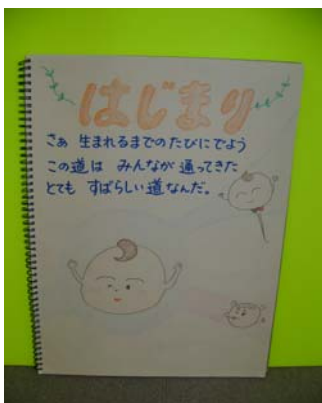 はじまり
さぁ 生まれるまでのたびにでよう
この道は みんなが 通ってきた
とても すばらしい道なんだ。